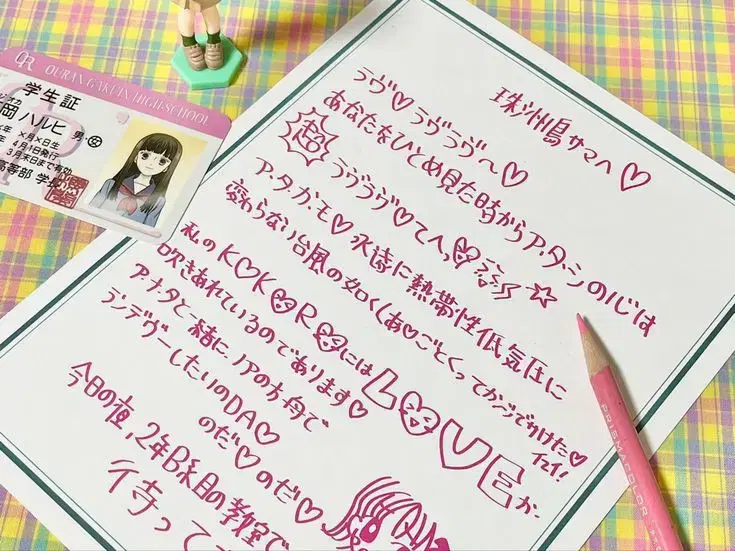 OR OURAN GAKUIN HIGH SCHOOL
学生証
ジオカ
岡 ハルヒ 男・女
年 ×月×日生
年 4月1日発行
3月末日まで有効
高等部 学長
珠洲島サマへ♡
ラヴ♡ラヴラヴ〜♡
あなたをひとめ見た時からア・タ・シの心は
超ラヴラヴ♡てへっ☆
ア・タ・カ・モ♡永遠に熱帯性低気圧に
変わらない台風の如く(あ♡ごとくってカンジでかけた♡
イエイ!
私のK♡K♡R♡にはL♡VEが
吹きあれているのであります♡
アナタと一緒に、ノアの方舟で
ランデヴーしたいのDA♡
のだ♡のだ♡
今日の夜、2年B組目の教室で
待って
PRISMACOLOR